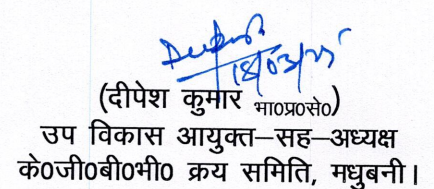 18/03/25
(दीपेश कुमार भा०प्र०से०)
उप विकास आयुक्त–सह–अध्यक्ष
के०जी०बी०भी० क्रय समिति, मधुबनी।